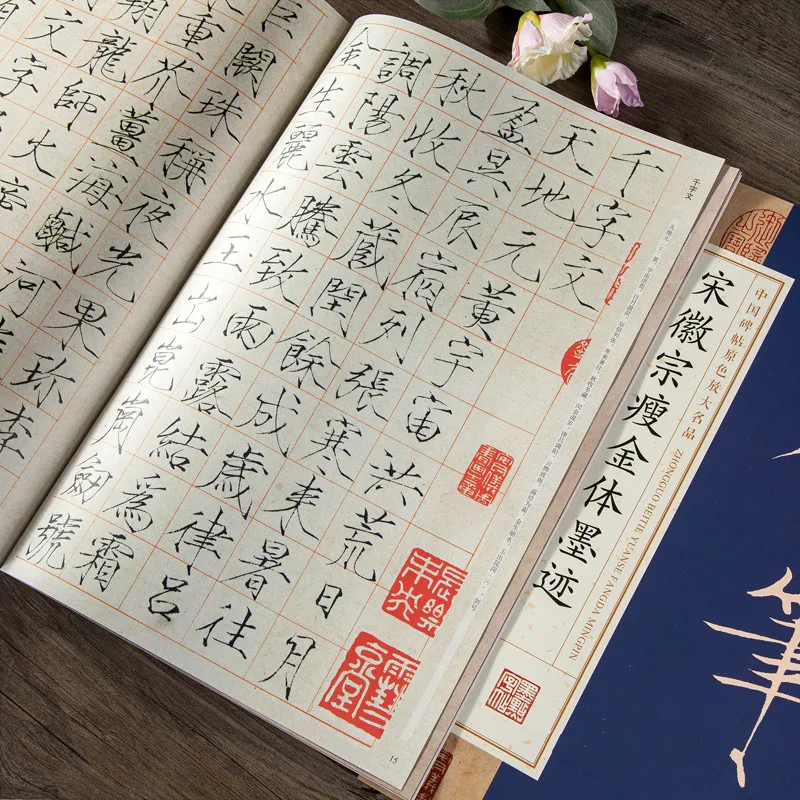 千字文
天地元黃宇宙洪荒日月
盈昃辰宿列張寒來暑往
秋收冬藏閏餘成歲律呂
調陽雲騰致雨露結爲霜
金生麗水玉出崑崗劍號
巨闕珠稱夜光果珍李
重芥薑海鹹河
翔龍師火
文字
千字文
15
中国碑帖原色放大名品
宋徽宗瘦金体墨迹
ZHONGGUO BEITIE YUANSE FANGDA MINGPIN
筆